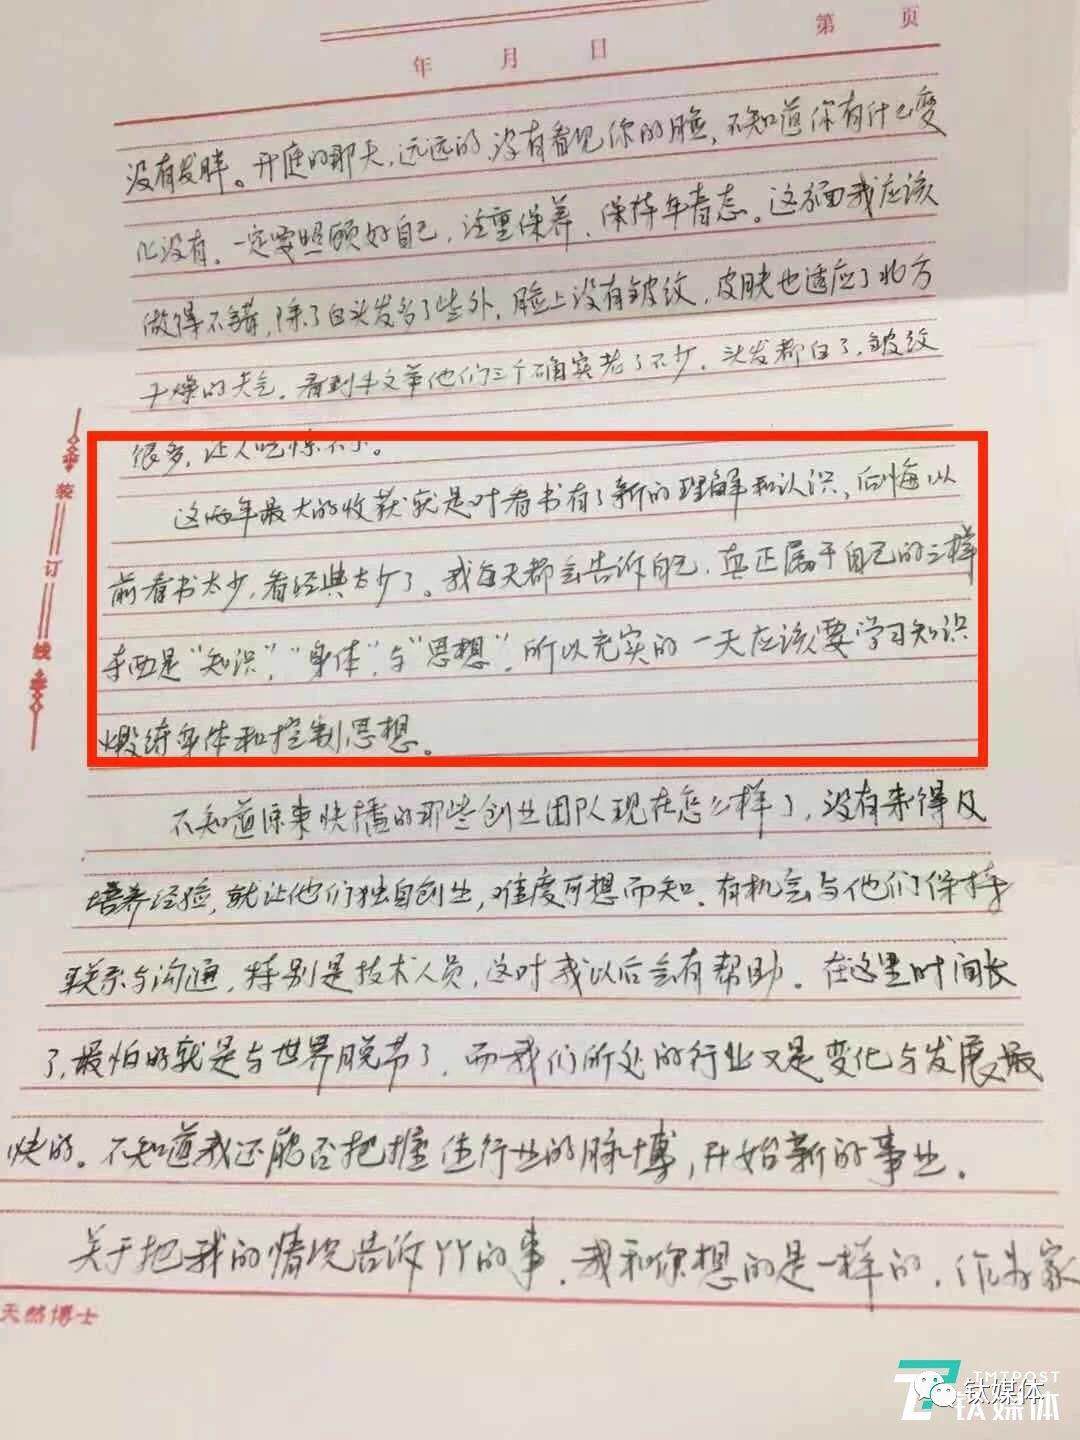 第 页
年 月 日
没有发胖。开庭的那天,远远的,没有看见你的脸,不知道你有什么变
化没有,一定要照顾好自己,注重保养,保持年青态。这方面我应该
做得不错,除了白头发多了些外,脸上没有皱纹,皮肤也适应了北方
干燥的天气。看到牛文举他们三个确实老了不少,头发都白了,皱纹
很多,让人吃惊不小。
这两年最大的收获就是对看书有了新的理解和认识,后悔以
前看书太少,看经典太少了。我每天都会告诉自己,真正属于自己的三样
东西是“知识”,“身体”,与“思想”,所以充实的一天应该要学习知识
煅练身体和控制思想。
不知道原来快播的那些创业团队现在怎么样了,没有来得及
培养经验,就让他们独自创业,难度可想而知。有机会与他们保持
联系与沟通,特别是技术人员,这对我以后会有帮助。在这里时间长
了,最怕的就是与世界脱节了,而我们所处的行业又是变化与发展最
快的。不知道我还能否把握住行业的脉博,开始新的事业。
关于把我的情况告诉丫丫的事,我和你想的是一样的,作为家
装订线
天然博士
TMTPOST
钛媒体
钛媒体